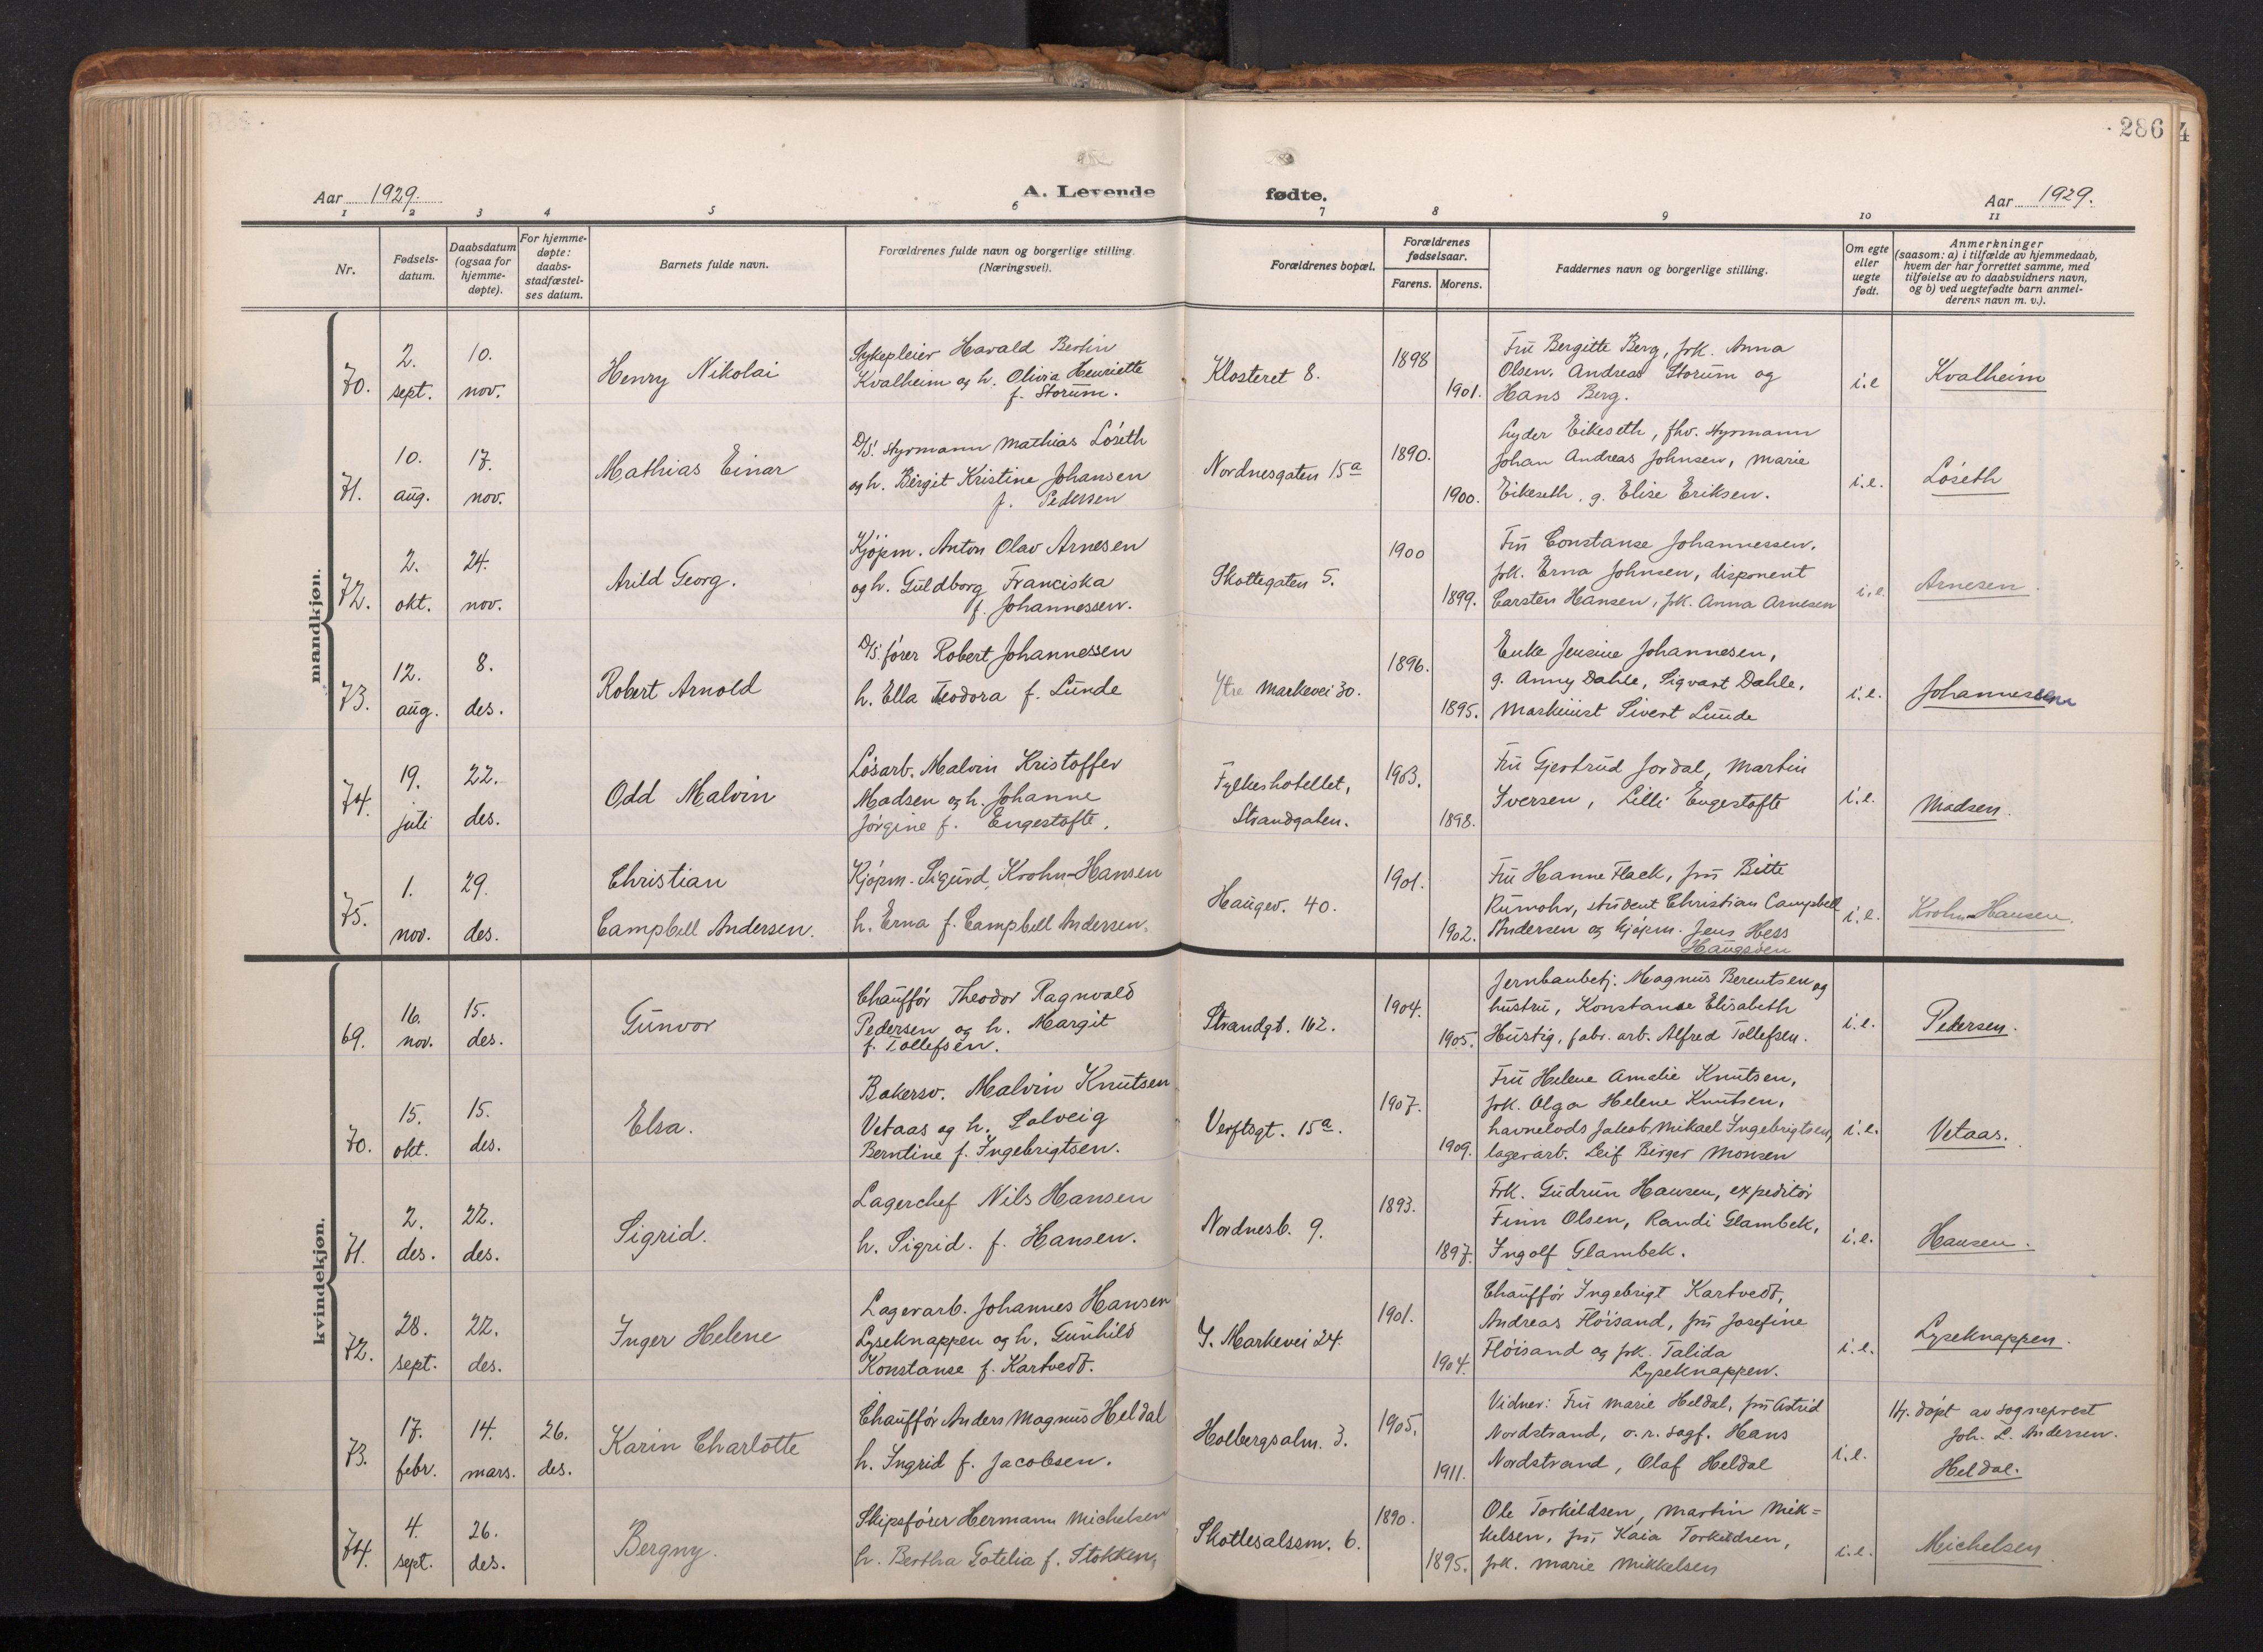 286
4
Aar 1929.
A. Levende
fødte.
Aar 1929.
1 2 3 4 5 6 7 8 9 10 11
Nr.
Fødsels-
datum.
Daabsdatum
(ogsaa for
hjemme-
døpte).
For hjemme-
døpte:
daabs-
stadfæstel-
ses datum.
Barnets fulde navn.
Forældrenes fulde navn og borgerlige stilling.
(Næringsvei).
Forældrenes bopæl.
Forældrenes
fødselsaar.
Farens. Morens.
Faddernes navn og borgerlige stilling.
Om egte
eller
uegte
født.
Anmerkninger
(saasom: a) i tilfælde av hjemmedaab,
hvem der har forrettet samme, med
tilføielse av to daabsvidners navn,
og b) ved uegtefødte barn anmel-
derens navn m. v.).
mandkjøn.
70.
2.
sept.
10.
nov.
Henry Nikolai
Sykepleier Harald Bertin
Kvalheim og h. Olivia Henriette
f. Storum.
Klosteret 8.
1898
1901.
Fru Bergitte Berg, frk. Anna
Olsen. Andreas Storum og
Hans Berg.
i.e
Kvalheim
71.
10.
aug.
17.
nov.
Mathias Einar
D/S. styrmann Mathias Løseth
og h. Birgit Kristine Johansen
f. Pedersen
Nordnesgaten 15a
1890.
1900.
Lyder Eikeseth, fhv. styrmann
Johan Andreas Johnsen, Marie
Eikeseth, g. Elise Eriksen.
i.e.
Løseth
72.
2.
okt.
24.
nov.
Arild Georg.
Kjøpm. Anton Olav Arnesen
og h. Guldborg Franciska
f. Johannessen.
Skottegaten 5.
1900
1899.
Fru Constanse Johannessen,
frk. Erna Johnsen, disponent
Carsten Hansen, frk. Anna Arnesen
i.e.
Arnesen.
73.
12.
aug.
8.
des.
Robert Arnold
D/S. fører Robert Johannessen
h. Ella Teodora f. Lunde
Ytre Markevei 30.
1896.
1895.
Enke Jensine Johannesen,
g. Anny Dahle, Sigvart Dahle,
Maskinist Sivert Lunde
i.e.
Johannessen
74.
19.
juli
22.
des.
Odd Malvin
Løsarb. Malvin Kristoffer
Madsen og h. Johanne
Jørgine f. Engestofte.
Fylkeshotellet,
Strandgaten.
1903.
1898.
Fru Gjertrud Jordal, Martin
Iversen, Lilli Engestofte
i.e.
Madsen.
75.
1.
nov.
29.
des.
Christian
Campbell Andersen.
Kjøpm. Sigurd Krohn-Hansen
h. Erna f. Campbell Andersen.
Haugev. 40.
1901.
1902.
Fru Hanne Flack, fru Bitte
Rumohr, student Christian Campbell
Andersen og kjøpm. Jens Hess
Haugsøen
i.e.
Krohn-Hansen.
kvindekjøn.
69.
16.
nov.
15.
des.
Gunvor
Chauffør Theodor Ragnvald
Pedersen og h. Margit
f. Tollefsen.
Strandgt. 162.
1904.
1905.
Jernbanbetj. Magnus Berentsen og
hustru, Konstanse Elisabeth
Hustig, fabr. arb. Alfred Tollefsen.
i.e.
Pedersen.
70.
15.
okt.
15.
des.
Elsa.
Bakersv. Malvin Knutsen
Vetaas og h. Solveig
Berntine f. Ingebrigtsen.
Verftsgt. 15a.
1907.
1909.
Fru Helene Amalie Knutsen,
frk. Olga Helene Knutsen,
havnelods Jakob Mikael Ingebrigtsen,
lagerarb. Leif Birger Monsen
i.e.
Vetaas.
71.
2.
des.
22.
des.
Sigrid.
Lagerchef Nils Hansen
h. Sigrid. f. Hansen.
Nordnesb. 9.
1893.
1897.
Frk. Gudrun Hansen, expeditør
Finn Olsen, Randi Glambek,
Ingolf Glambek.
i.e.
Hansen.
72.
28.
sept.
22.
des.
Inger Helene
Lagerarb. Johannes Hansen
Lyseknappen og h. Gunhild
Konstanse f. Kartvedt.
Y. Markevei 24.
1901.
1904.
Chauffør Ingebrigt Kartvedt,
Andreas Fløisand, fru Josefine
Fløisand og frk. Talida
Lyseknappen.
i.e.
Lyseknappen.
73.
17.
febr.
14.
mars.
26.
des.
Karin Charlotte
Chauffør Anders Magnus Heldal
h. Ingrid f. Jacobsen.
Holbergsalm. 3.
1905.
1911.
Vidner: Fru Marie Heldal, fru Astrid
Nordstrand, o.r. sagf. Hans
Nordstrand, Olaf Heldal
i.e.
Hj. døpt av sogneprest
Joh. L. Andersen.
Heldal.
74.
4.
sept.
26.
des.
Bergny.
Skipsfører Hermann Michelsen
h. Bertha Gotelia f. Stokken,
Skottesalssm. 6.
1890.
1895.
Ole Torkildsen, Martin Mik=
kelsen, fru Kaia Torkildsen,
frk. Marie Mikkelsen
i.e.
Michelsen.